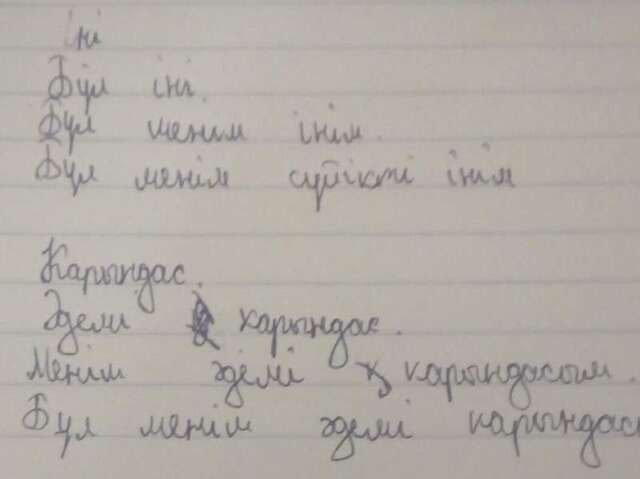 іні
Бұл іні.
Бұл менім інім.
Бұл менім сүйікті інім
Карындас.
Әдемі карындас.
Менім әдемі карындасым.
Бұл менім әдемі карындас